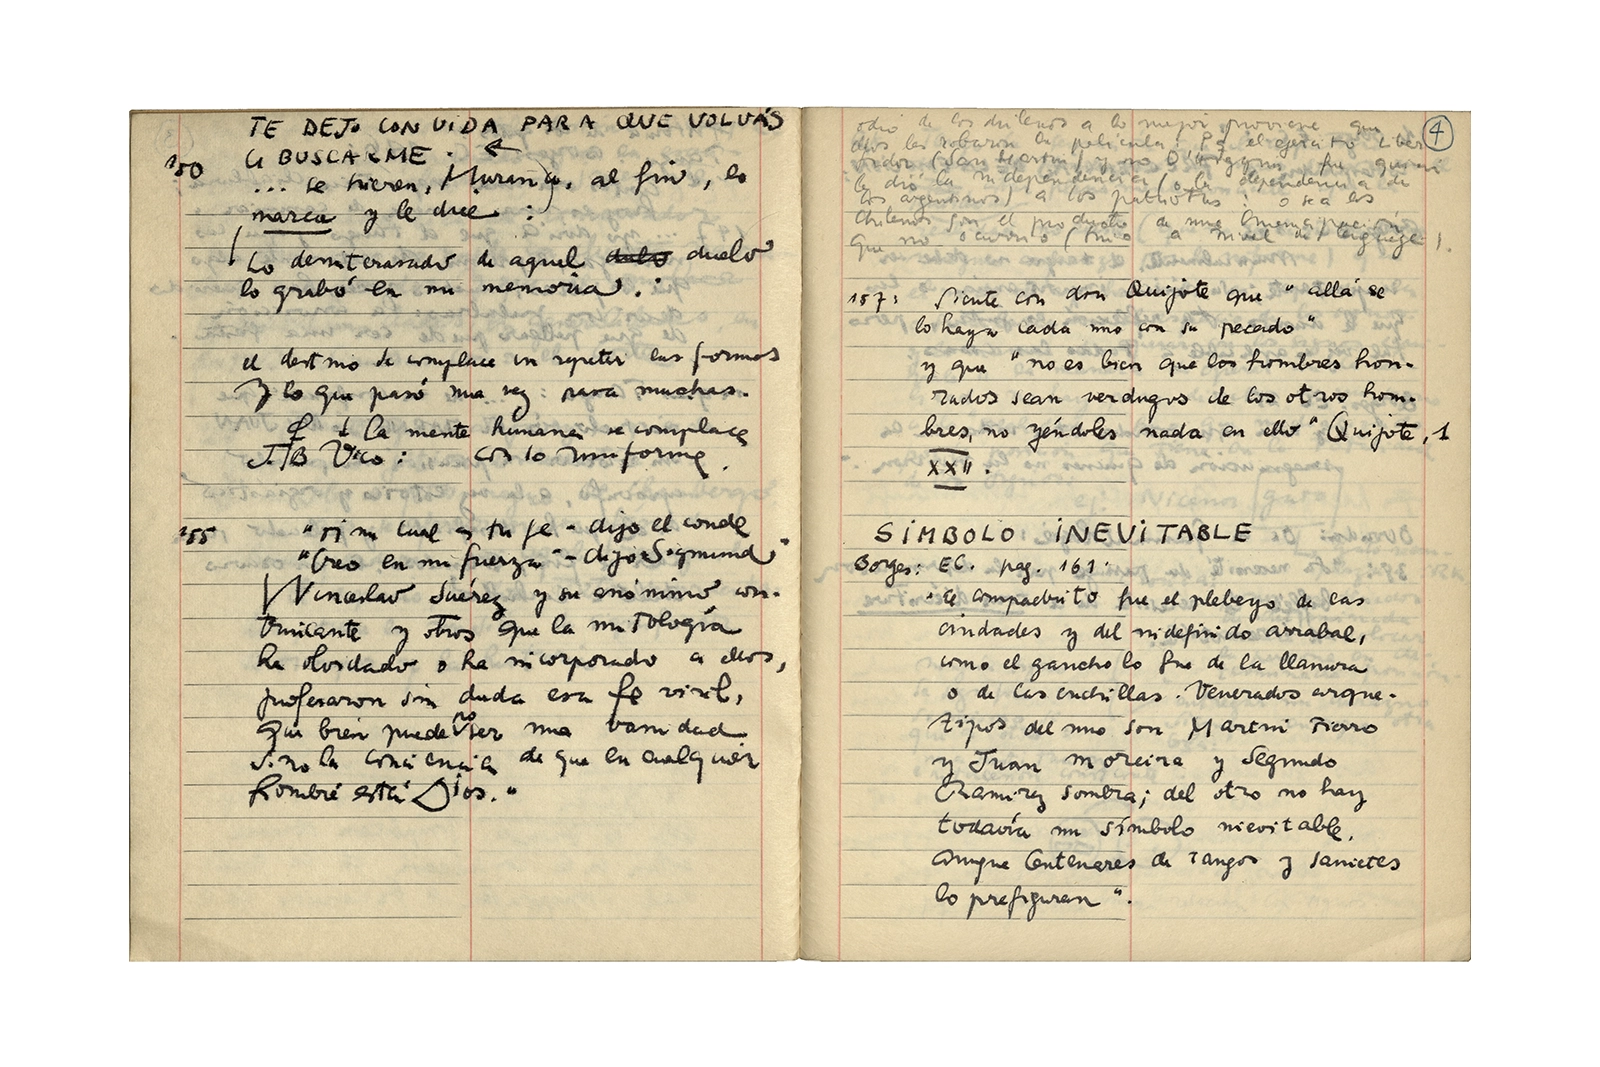 TE DEJO CON VIDA PARA QUE VOLVÁS
a BUSCARME. ←
150
... se hieren, Muranco, al fin, lo
marca y le dice :
Lo desinteresado de aquel duelo duelo
lo grabó en mi memoria. :
el destino se complace en repetir las formas
y lo que pasó una vez: pasa muchas.
cf ↓ la mente humana se complace
J.B Vico : con lo uniforme.
155
"Di mi cual es tu fe - dijo el conde
"Creo en mi fuerza" - dijo Sigmund"
Wenceslao Suárez y su anónimo con-
trincante y otros que la mitología
ha olvidado o ha incorporado a ellos,
profesaron sin duda esa fe viril,
que bien puede no ser una vanidad
sino la conciencia de que en cualquier
hombre está Dios."
4
odio de los chilenos a lo mejor proviene que
ellos les robaron la película: Pq el ejército Liber
tador (San Martín) y no O'Higgins fue quien
le dió la independencia (o la dependencia de
los argentinos) a los patriotas : o sea los
Chilenos son el producto de una Emancipación
que no ocurrió (sino a nivel de lenguaje).
157: Siente con don Quijote que "allá se
lo haya cada uno con su pecado"
y que "no es bien que los hombres hon-
rados sean verdugos de los otros hom-
bres, no yéndoles nada en ello" (Quijote, 1
XXII.
SÍMBOLO INEVITABLE
Borges: EC. pag. 161.
"El compadrito fue el plebeyo de las
ciudades y del indefinido arrabal,
como el gaucho lo fue de la llanura
o de las cuchillas. Venerados arque-
tipos del uno son Martín Fierro
y Juan Moreira y Segundo
Ramírez Sombra; del otro no hay
todavía un símbolo inevitable,
aunque centenares de tangos y sainetes
lo prefiguran".